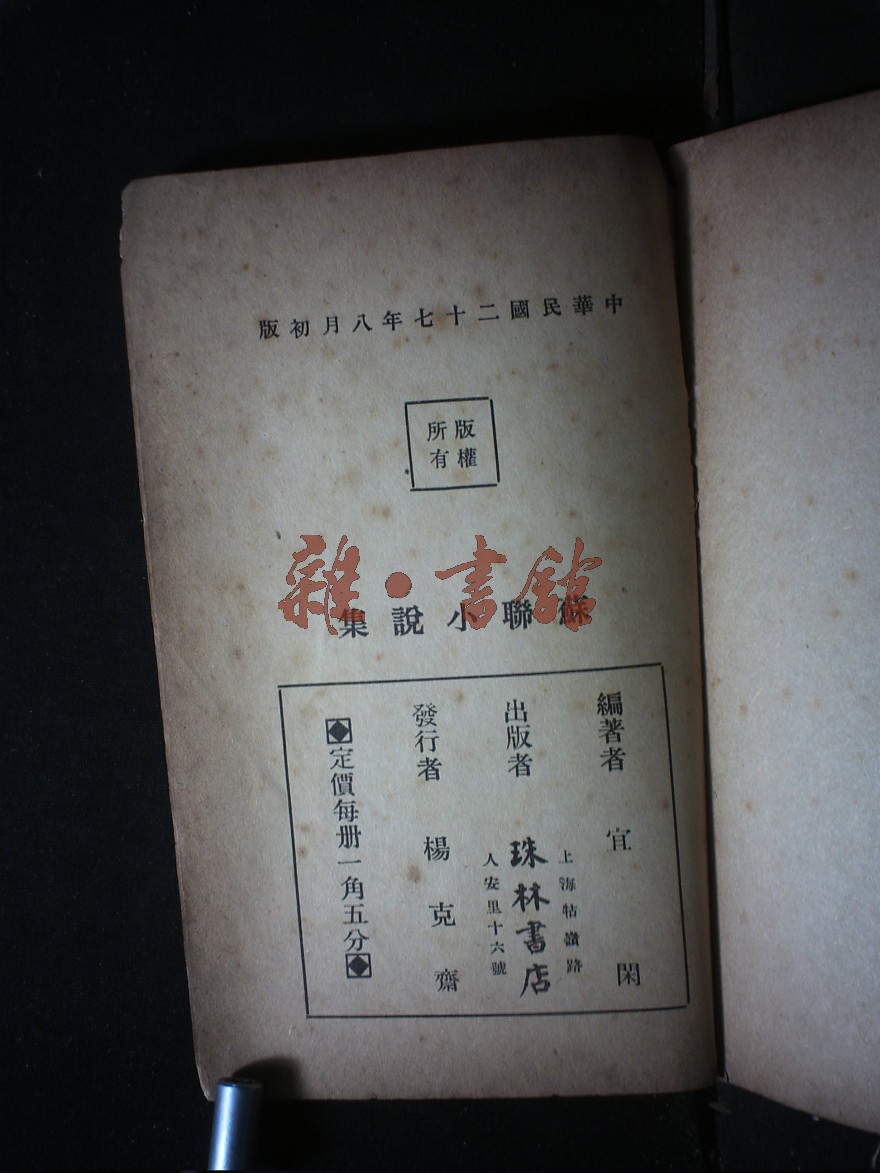 中華民國二十七年八月初版
版權
所有
雜·書館
蘇聯小說集
編著者 宜閑
出版者 珠林書店
上海牯嶺路
人安里十六號
發行者 楊克齋
定價每册一角五分